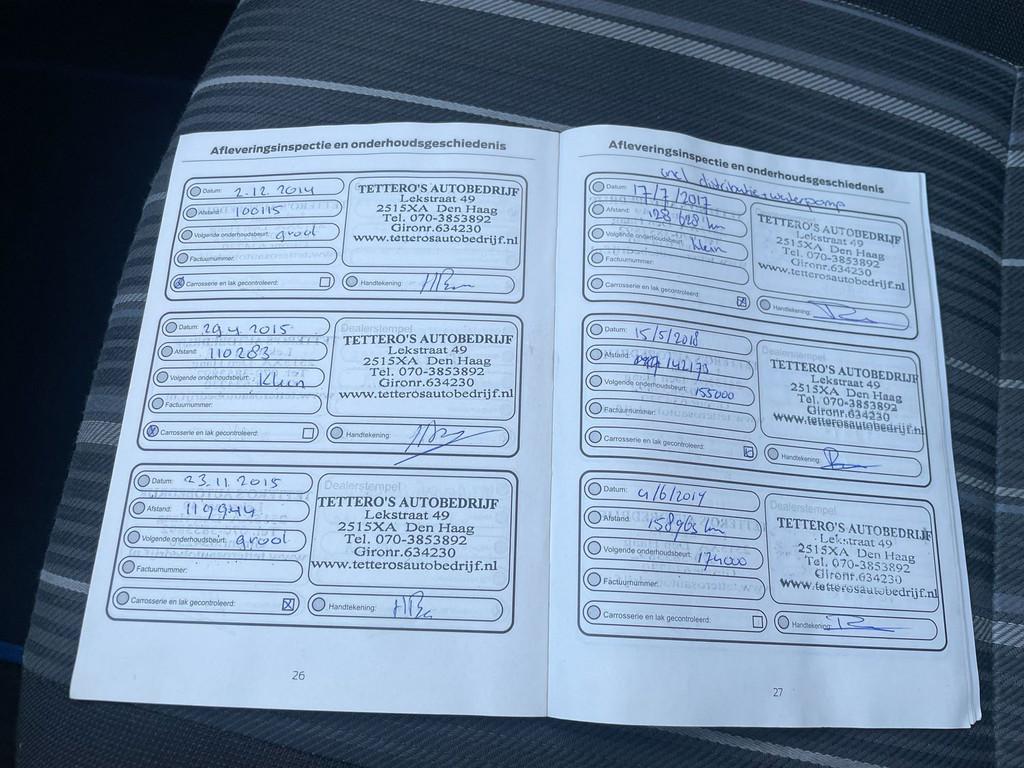 Afleveringsinspectie en onderhoudsgeschiedenis
Datum: 2.12.2014
Afstand: 100115
Volgende onderhoudsbeurt: groot
Factuurnummer:
Carrosserie en lak gecontroleerd:
Handtekening:
TETTERO'S AUTOBEDRIJF
Lekstraat 49
2515XA Den Haag
Tel. 070-3853892
Gironr.634230
www.tetterosautobedrijf.nl
Datum: 29.4.2015
Afstand: 110283
Volgende onderhoudsbeurt: Klein
Factuurnummer:
Carrosserie en lak gecontroleerd:
Handtekening:
Dealerstempel
TETTERO'S AUTOBEDRIJF
Lekstraat 49
2515XA Den Haag
Tel. 070-3853892
Gironr.634230
www.tetterosautobedrijf.nl
Datum: 23.11.2015
Afstand: 119944
Volgende onderhoudsbeurt: groot
Factuurnummer:
Carrosserie en lak gecontroleerd:
Handtekening:
Dealerstempel
TETTERO'S AUTOBEDRIJF
Lekstraat 49
2515XA Den Haag
Tel. 070-3853892
Gironr.634230
www.tetterosautobedrijf.nl
26
Afleveringsinspectie en onderhoudsgeschiedenis
incl distributie + waterpomp
Datum: 17/7/2017
Afstand: 128628 km
Volgende onderhoudsbeurt: klein
Factuurnummer:
Carrosserie en lak gecontroleerd:
Handtekening:
TETTERO'S AUTOBEDRIJF
Lekstraat 49
2515XA Den Haag
Tel. 070-3853892
Gironr.634230
www.tetterosautobedrijf.nl
Datum: 15/5/2018
Afstand: 142175
Volgende onderhoudsbeurt: 155000
Factuurnummer:
Carrosserie en lak gecontroleerd:
Handtekening:
TETTERO'S AUTOBEDRIJF
Lekstraat 49
2515XA Den Haag
Tel. 070-3853892
Gironr.634230
www.tetterosautobedrijf.nl
Datum: 4/6/2019
Afstand: 158965 km
Volgende onderhoudsbeurt: 174000
Factuurnummer:
Carrosserie en lak gecontroleerd:
Handtekening:
Dealerstempel
TETTERO'S AUTOBEDRIJF
Lekstraat 49
2515XA Den Haag
Tel. 070-3853892
Gironr.634230
www.tetterosautobedrijf.nl
27